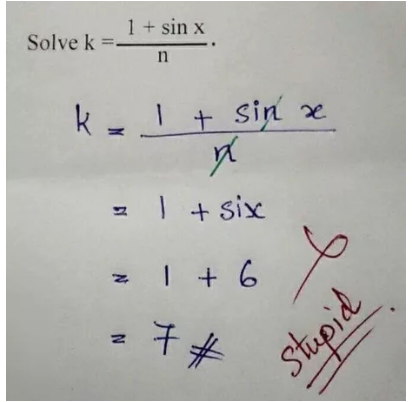 Solve k = (1 + sin x)/n.
k = (1 + sin x)/n
= 1 + six
= 1 + 6
= 7 #
Stupid.